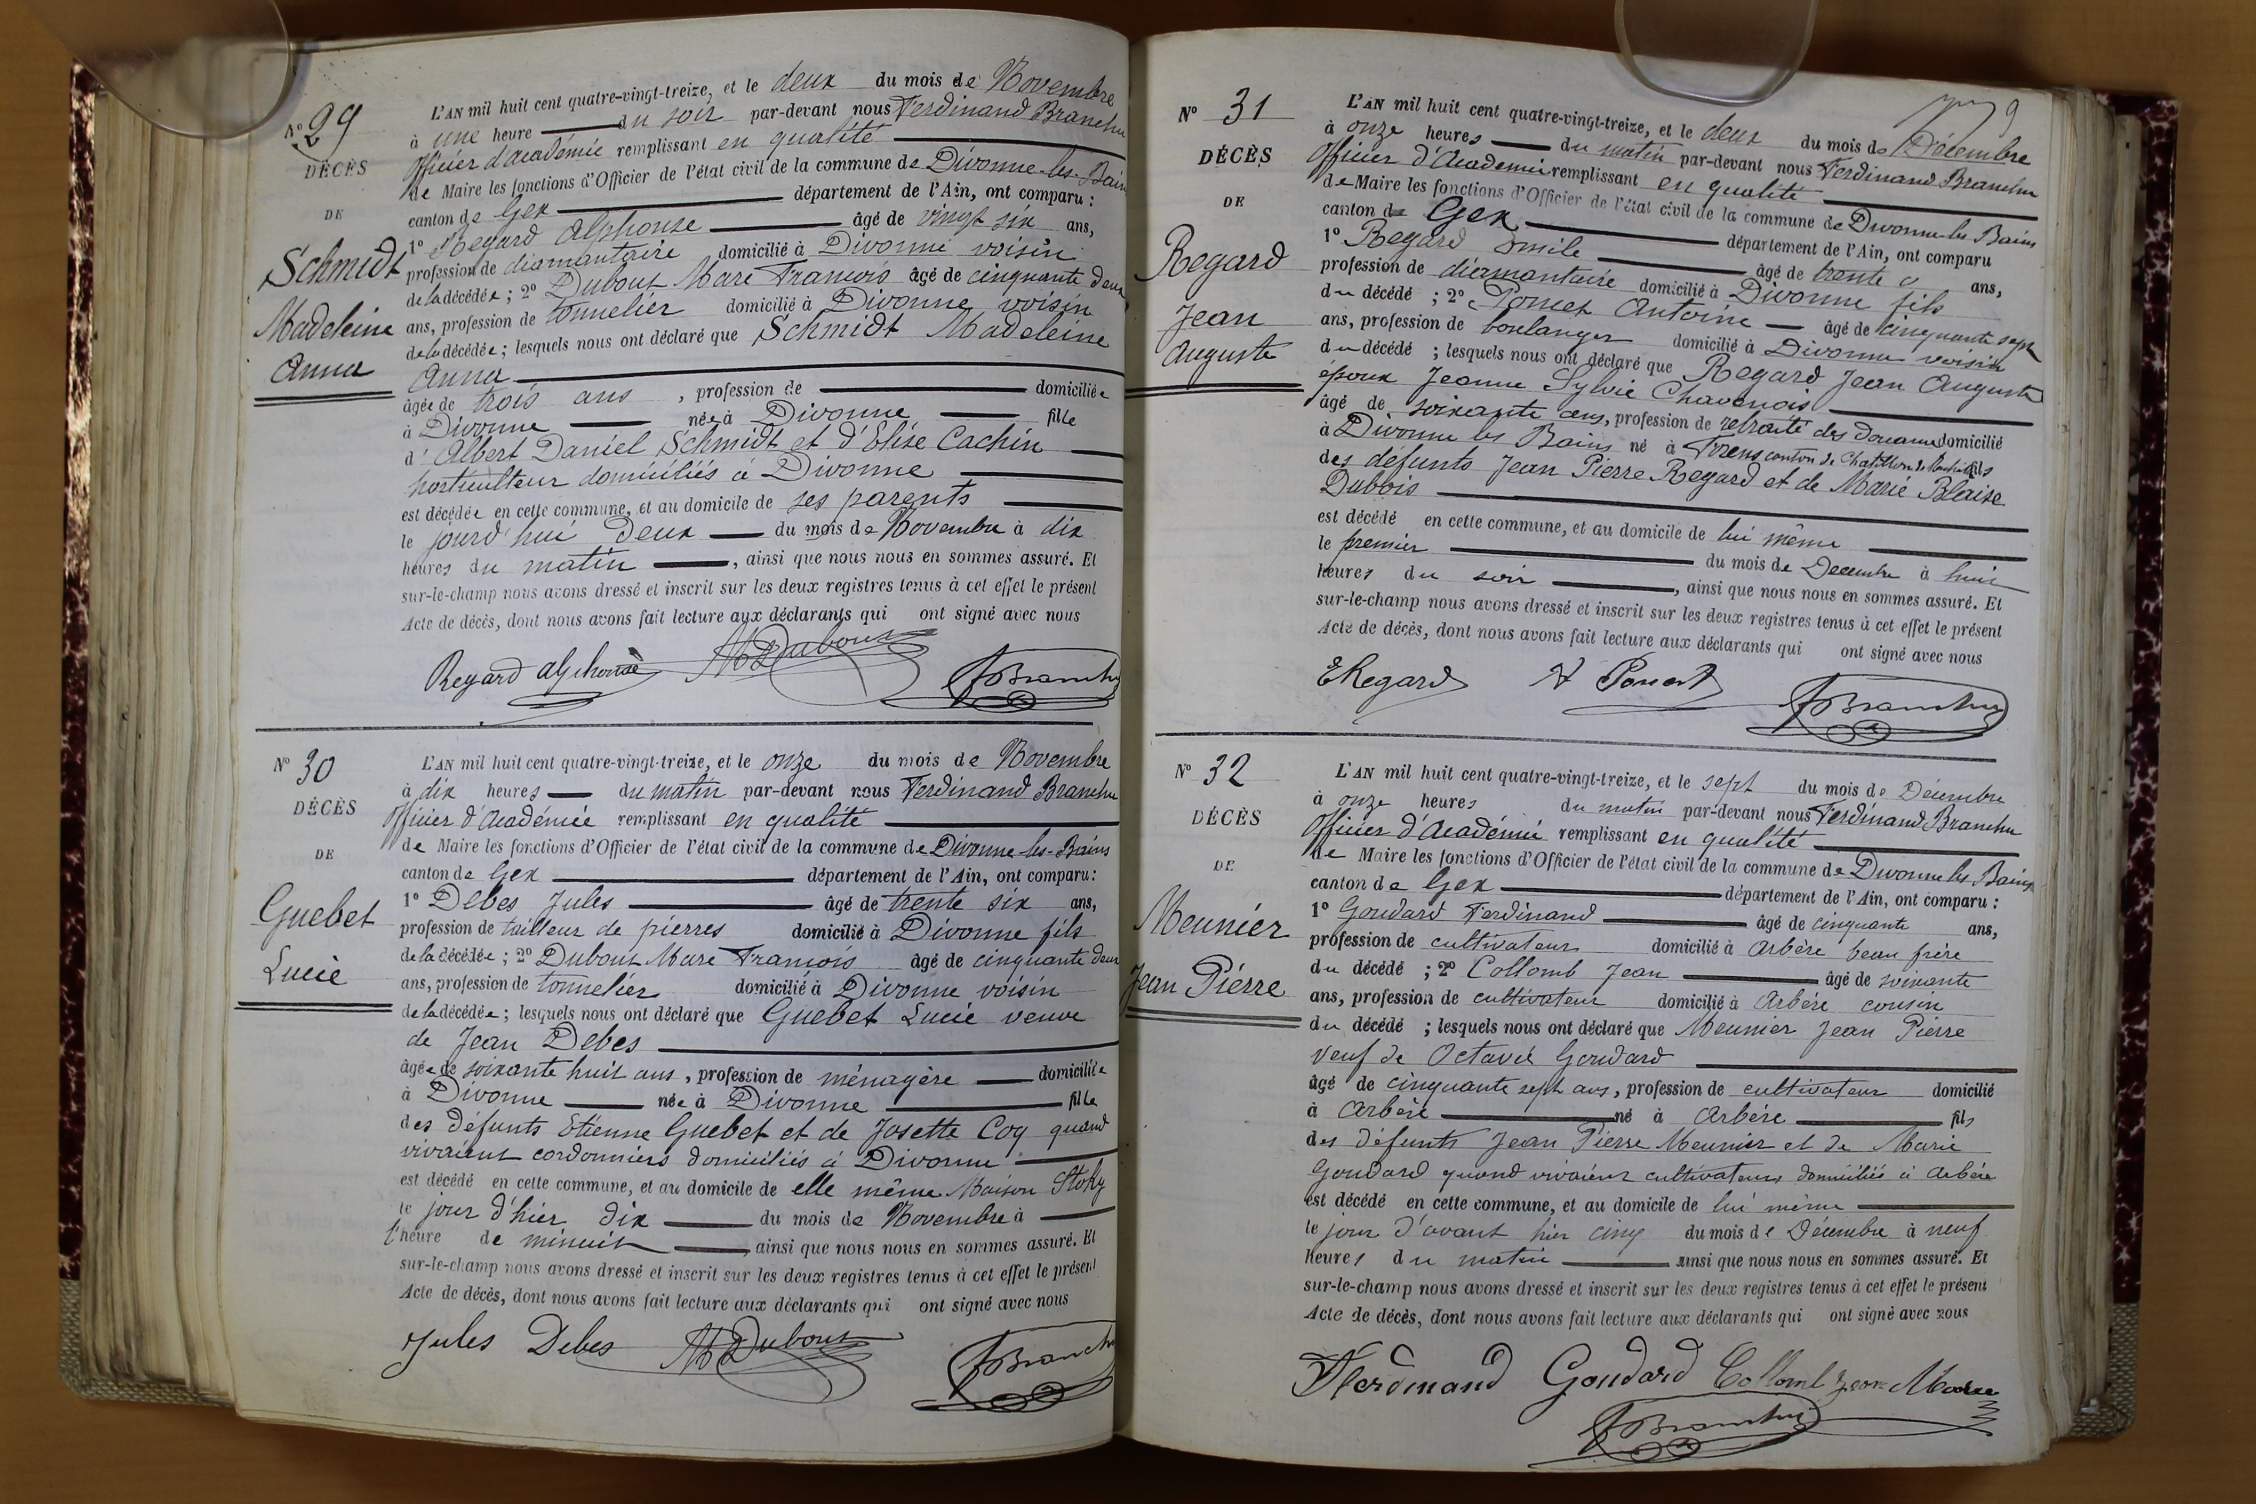 N° 29
DÉCÈS
DE
Schmidt
Madeleine
Anna
L'AN mil huit cent quatre-vingt-treize, et le deux du mois de Novembre
à une heure du soir par-devant nous Ferdinand Branchu
Officier d'académie remplissant en qualité
de Maire les fonctions d'Officier de l'état civil de la commune de Divonne-les-Bains
canton de Gex département de l'Ain, ont comparu :
1° Regard Alphonse âgé de vingt six ans,
profession de diamantaire domicilié à Divonne voisin
de la décédée ; 2° Dubout Marc François âgé de cinquante deux
ans, profession de tonnelier domicilié à Divonne voisin
de la décédée ; lesquels nous ont déclaré que Schmidt Madeleine
Anna
âgée de trois ans , profession de domiciliée
à Divonne née à Divonne fille
d' Albert Daniel Schmidt et d'Elise Cachin
horticulteur domiciliés à Divonne
est décédée en cette commune, et au domicile de ses parents
le jourd'hui deux du mois de Novembre à dix
heures du matin , ainsi que nous nous en sommes assuré. Et
sur-le-champ nous avons dressé et inscrit sur les deux registres tenus à cet effet le présent
Acte de décès, dont nous avons fait lecture aux déclarants qui ont signé avec nous
Regard alphonse MDubout FBranchu
N° 30
DÉCÈS
DE
Guebet
Lucie
L'AN mil huit cent quatre-vingt-treize, et le onze du mois de Novembre
à dix heures du matin par-devant nous Ferdinand Branchu
Officier d'Académie remplissant en qualité
de Maire les fonctions d'Officier de l'état civil de la commune de Divonne-les-Bains
canton de Gex département de l'Ain, ont comparu :
1° Debes Jules âgé de trente six ans,
profession de tailleur de pierres domicilié à Divonne fils
de la décédée ; 2° Dubout Marc François âgé de cinquante deux
ans, profession de tonnelier domicilié à Divonne voisin
de la décédée ; lesquels nous ont déclaré que Guebet Lucie veuve
de Jean Debes
âgée de soixante huit ans , profession de ménagère domiciliée
à Divonne née à Divonne fille
des défunts Etienne Guebet et de Josette Coy quand
vivaient cordonniers domiciliés à Divonne
est décédé en cette commune, et au domicile de elle même Maison Stoky
le jour d'hier dix du mois de Novembre à
l'heure de minuit , ainsi que nous nous en sommes assuré. Et
sur-le-champ nous avons dressé et inscrit sur les deux registres tenus à cet effet le présent
Acte de décès, dont nous avons fait lecture aux déclarants qui ont signé avec nous
Jules Debes MDubout FBranchu
9
N° 31
DÉCÈS
DE
Regard
Jean
Auguste
L'AN mil huit cent quatre-vingt-treize, et le deux du mois de Décembre
à onze heures du matin par-devant nous Ferdinand Branchu
Officier d'Academie remplissant en qualité
de Maire les fonctions d'Officier de l'état civil de la commune de Divonne les Bains
canton de Gex département de l'Ain, ont comparu
1° Regard Emile âgé de trente ans,
profession de diamantaire domicilié à Divonne fils
du décédé ; 2° Poncet Antoine âgé de cinquante sept
ans, profession de boulanger domicilié à Divonne voisin
du décédé ; lesquels nous ont déclaré que Regard Jean Auguste
époux Jeanne Sylvie Chavanois
âgé de soixante ans, profession de retraité des Douanes domicilié
à Divonne les Bains né à Forens canton de Chatillon de Michaille fils
des défunts Jean Pierre Regard et de Marie Blaise
Dubois
est décédé en cette commune, et au domicile de lui même
le premier du mois de Decembre à huit
heures du soir , ainsi que nous nous en sommes assuré. Et
sur-le-champ nous avons dressé et inscrit sur les deux registres tenus à cet effet le présent
Acte de décès, dont nous avons fait lecture aux déclarants qui ont signé avec nous
ERegard A Poncet FBranchu
N° 32
DÉCÈS
DE
Meunier
Jean Pierre
L'AN mil huit cent quatre-vingt-treize, et le sept du mois de Décembre
à onze heures du matin par-devant nous Ferdinand Branchu
Officier d'Académie remplissant en qualité
de Maire les fonctions d'Officier de l'état civil de la commune de Divonne les Bains
canton de Gex département de l'Ain, ont comparu :
1° Goudard Ferdinand âgé de cinquante ans,
profession de cultivateur domicilié à Arbère beau frère
du décédé ; 2° Collomb Jean âgé de soixante
ans, profession de cultivateur domicilié à Arbère cousin
du décédé ; lesquels nous ont déclaré que Meunier Jean Pierre
veuf de Octavie Goudard
âgé de cinquante sept ans, profession de cultivateur domicilié
à Arbère né à Arbère fils
des défunts Jean Pierre Meunier et de Marie
Goudard quand vivaient cultivateurs domiciliés à Arbère
est décédé en cette commune, et au domicile de lui même
le jour d'avant hier cinq du mois de Décembre à neuf
heures du matin ainsi que nous nous en sommes assuré. Et
sur-le-champ nous avons dressé et inscrit sur les deux registres tenus à cet effet le présent
Acte de décès, dont nous avons fait lecture aux déclarants qui ont signé avec nous
Ferdinand Goudard Collomb Jean Marie
FBranchu